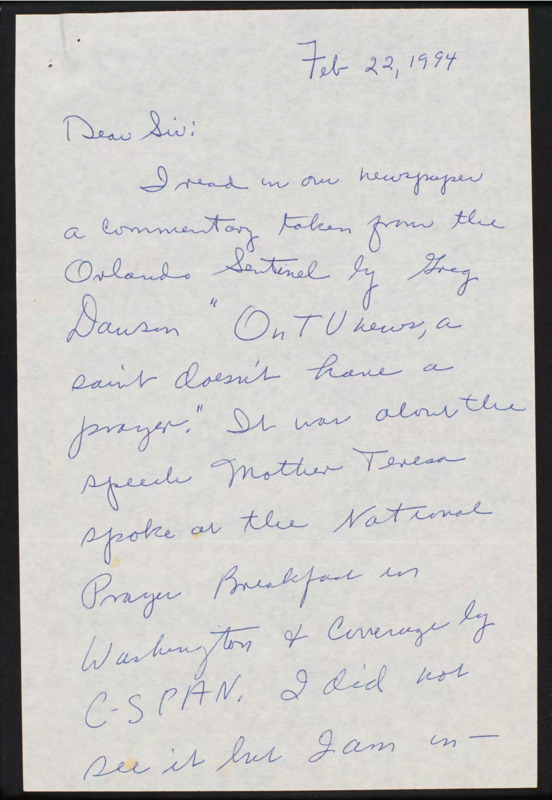 Feb 22, 1994
Dear Sir:
I read in our newspaper
a commentary taken from the
Orlando Sentinel by Greg
Dawson "On TV news, a
saint doesn't have a
prayer." It was about the
speech Mother Teresa
spoke at the National
Prayer Breakfast in
Washington & Coverage by
C-SPAN. I did not
see it but I am in—